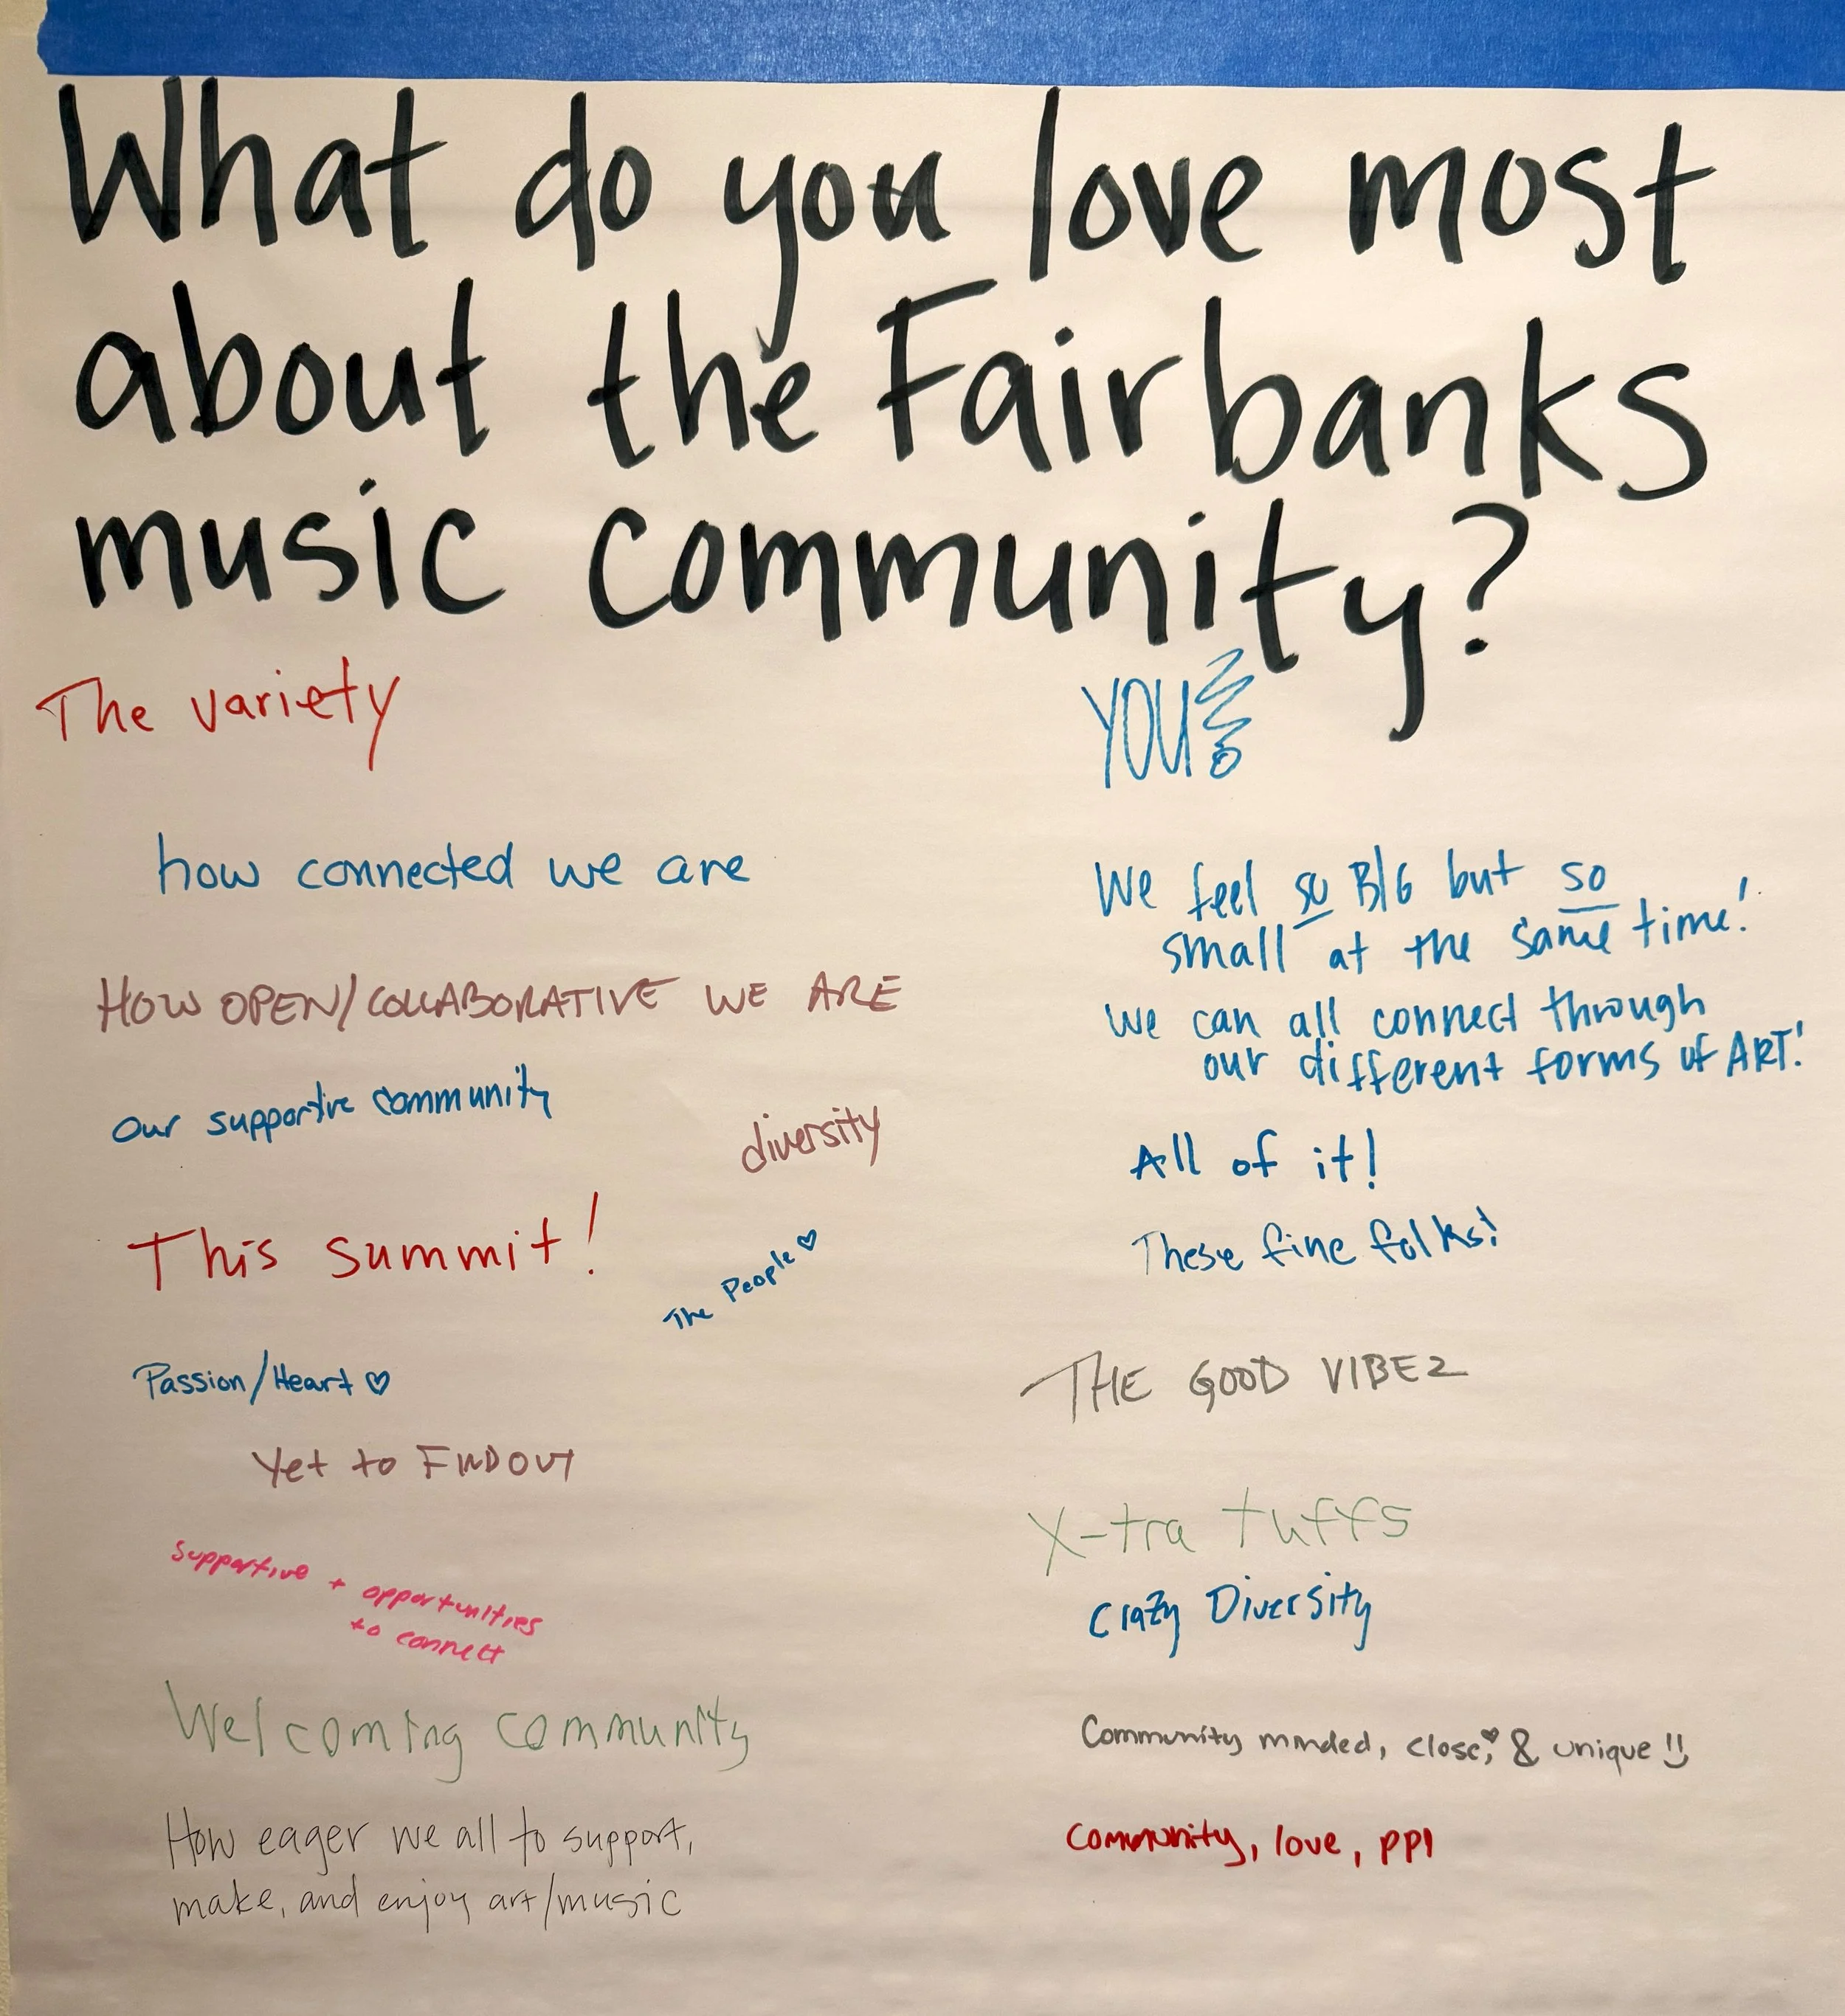 What do you love most
about the Fairbanks
music community?
The variety
how connected we are
HOW OPEN/COLLABORATIVE WE ARE
Our supportive community
diversity
This summit!
The People ♡
Passion/Heart ♡
Yet to FIND OUT
Supportive + opportunities
to connect
Welcoming community
How eager we all to support,
make, and enjoy art/music
YOU!
We feel so BIG but so
small at the same time!
We can all connect through
our different forms of ART!
All of it!
These fine folks!
THE GOOD VIBEZ
X-tra tuffs
Crazy Diversity
Community minded, close, & unique !!
Community, love, ppl